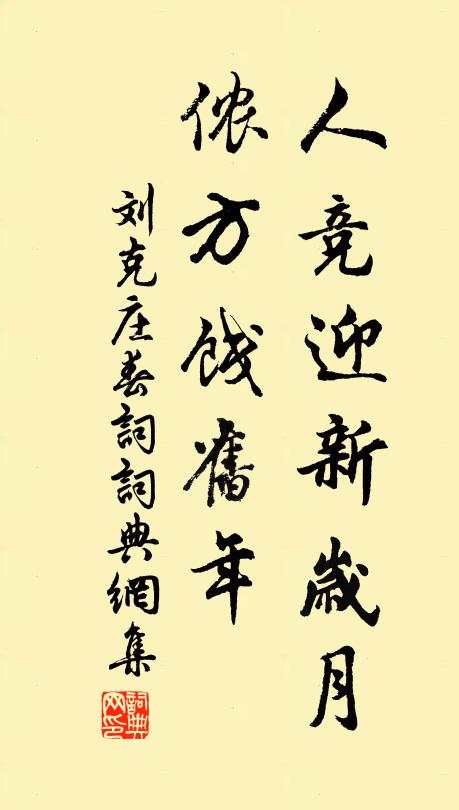 人竞迎新歲月
侬方饯舊年
刘克庄春詞詞典網集
詞典网印